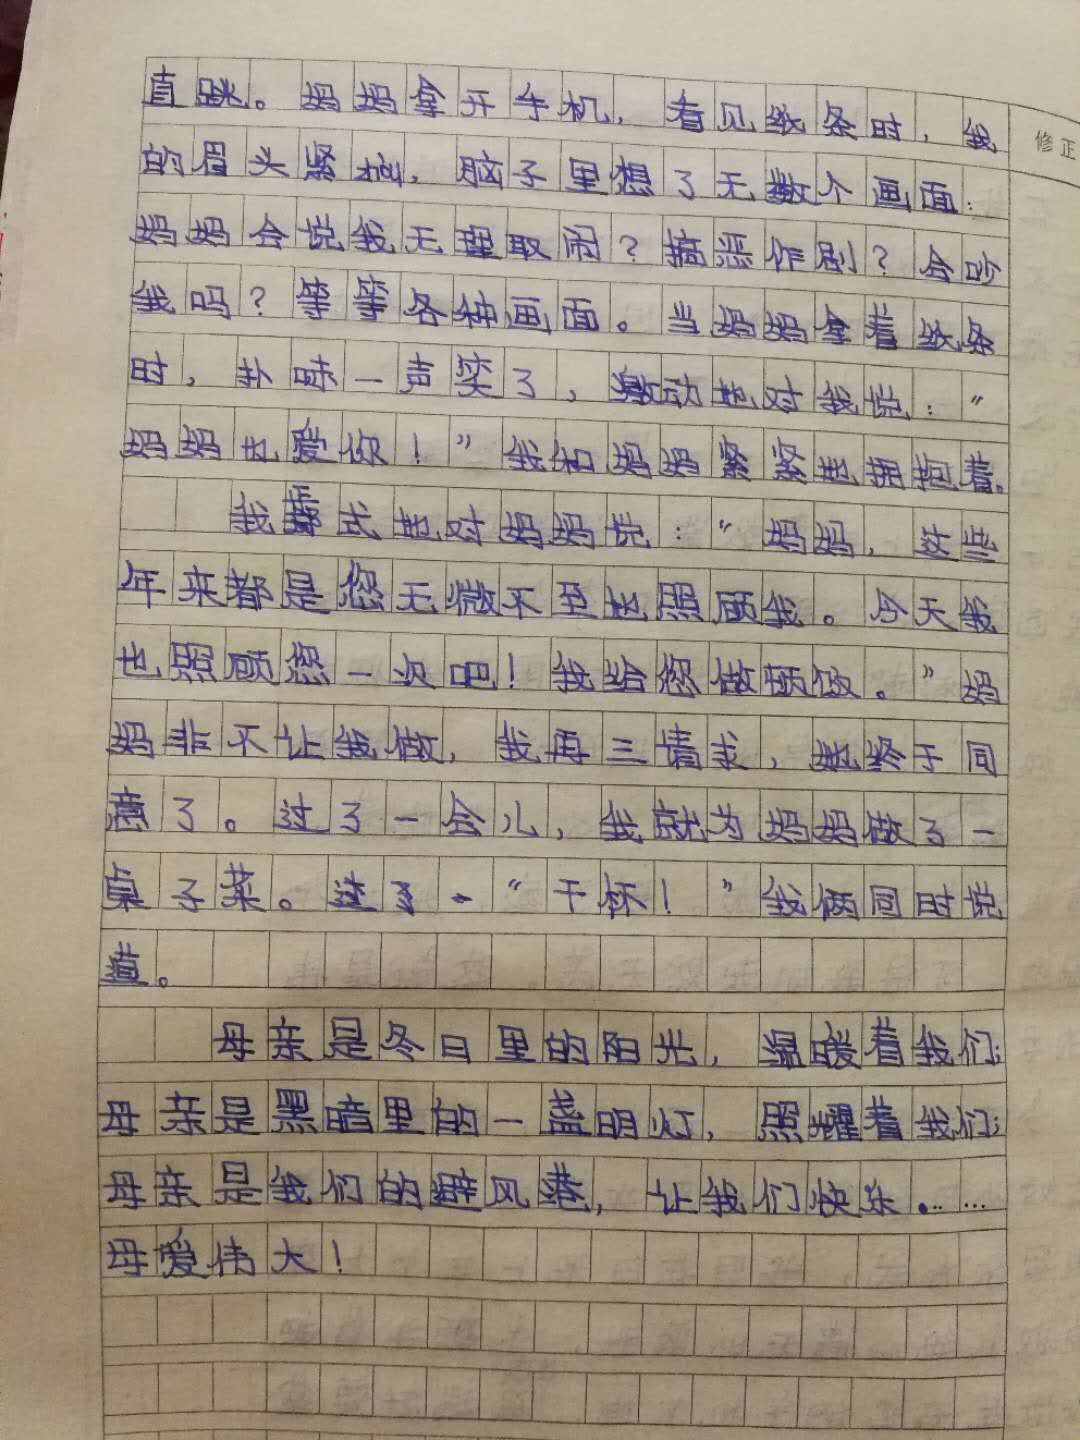 直跳。妈妈拿开手机，看见纸条时，我
修正
的眉头紧拗，脑子里想了无数个画面：
妈妈会说我无理取闹？搞恶作剧？会吵
我吗？等等各种画面。当妈妈拿着纸条
时，扑哧一声笑了，激动地对我说：“
妈妈也爱你！”我和妈妈紧紧地拥抱着。
我式地对妈妈说：“妈妈，这些
年来都是您无微不至地照顾我。今天我
也照顾您一次吧！我给您做顿饭。”妈
妈非不让我做，我再三请求，她终于同
意了。过了一会儿，我就为妈妈做了一
桌子菜。“干杯！”我俩同时说
道。
母亲是冬日里的阳光，温暖着我们；
母亲是黑暗里的一盏明灯，照耀着我们；
母亲是我们的避风港，让我们快乐……
母爱伟大！